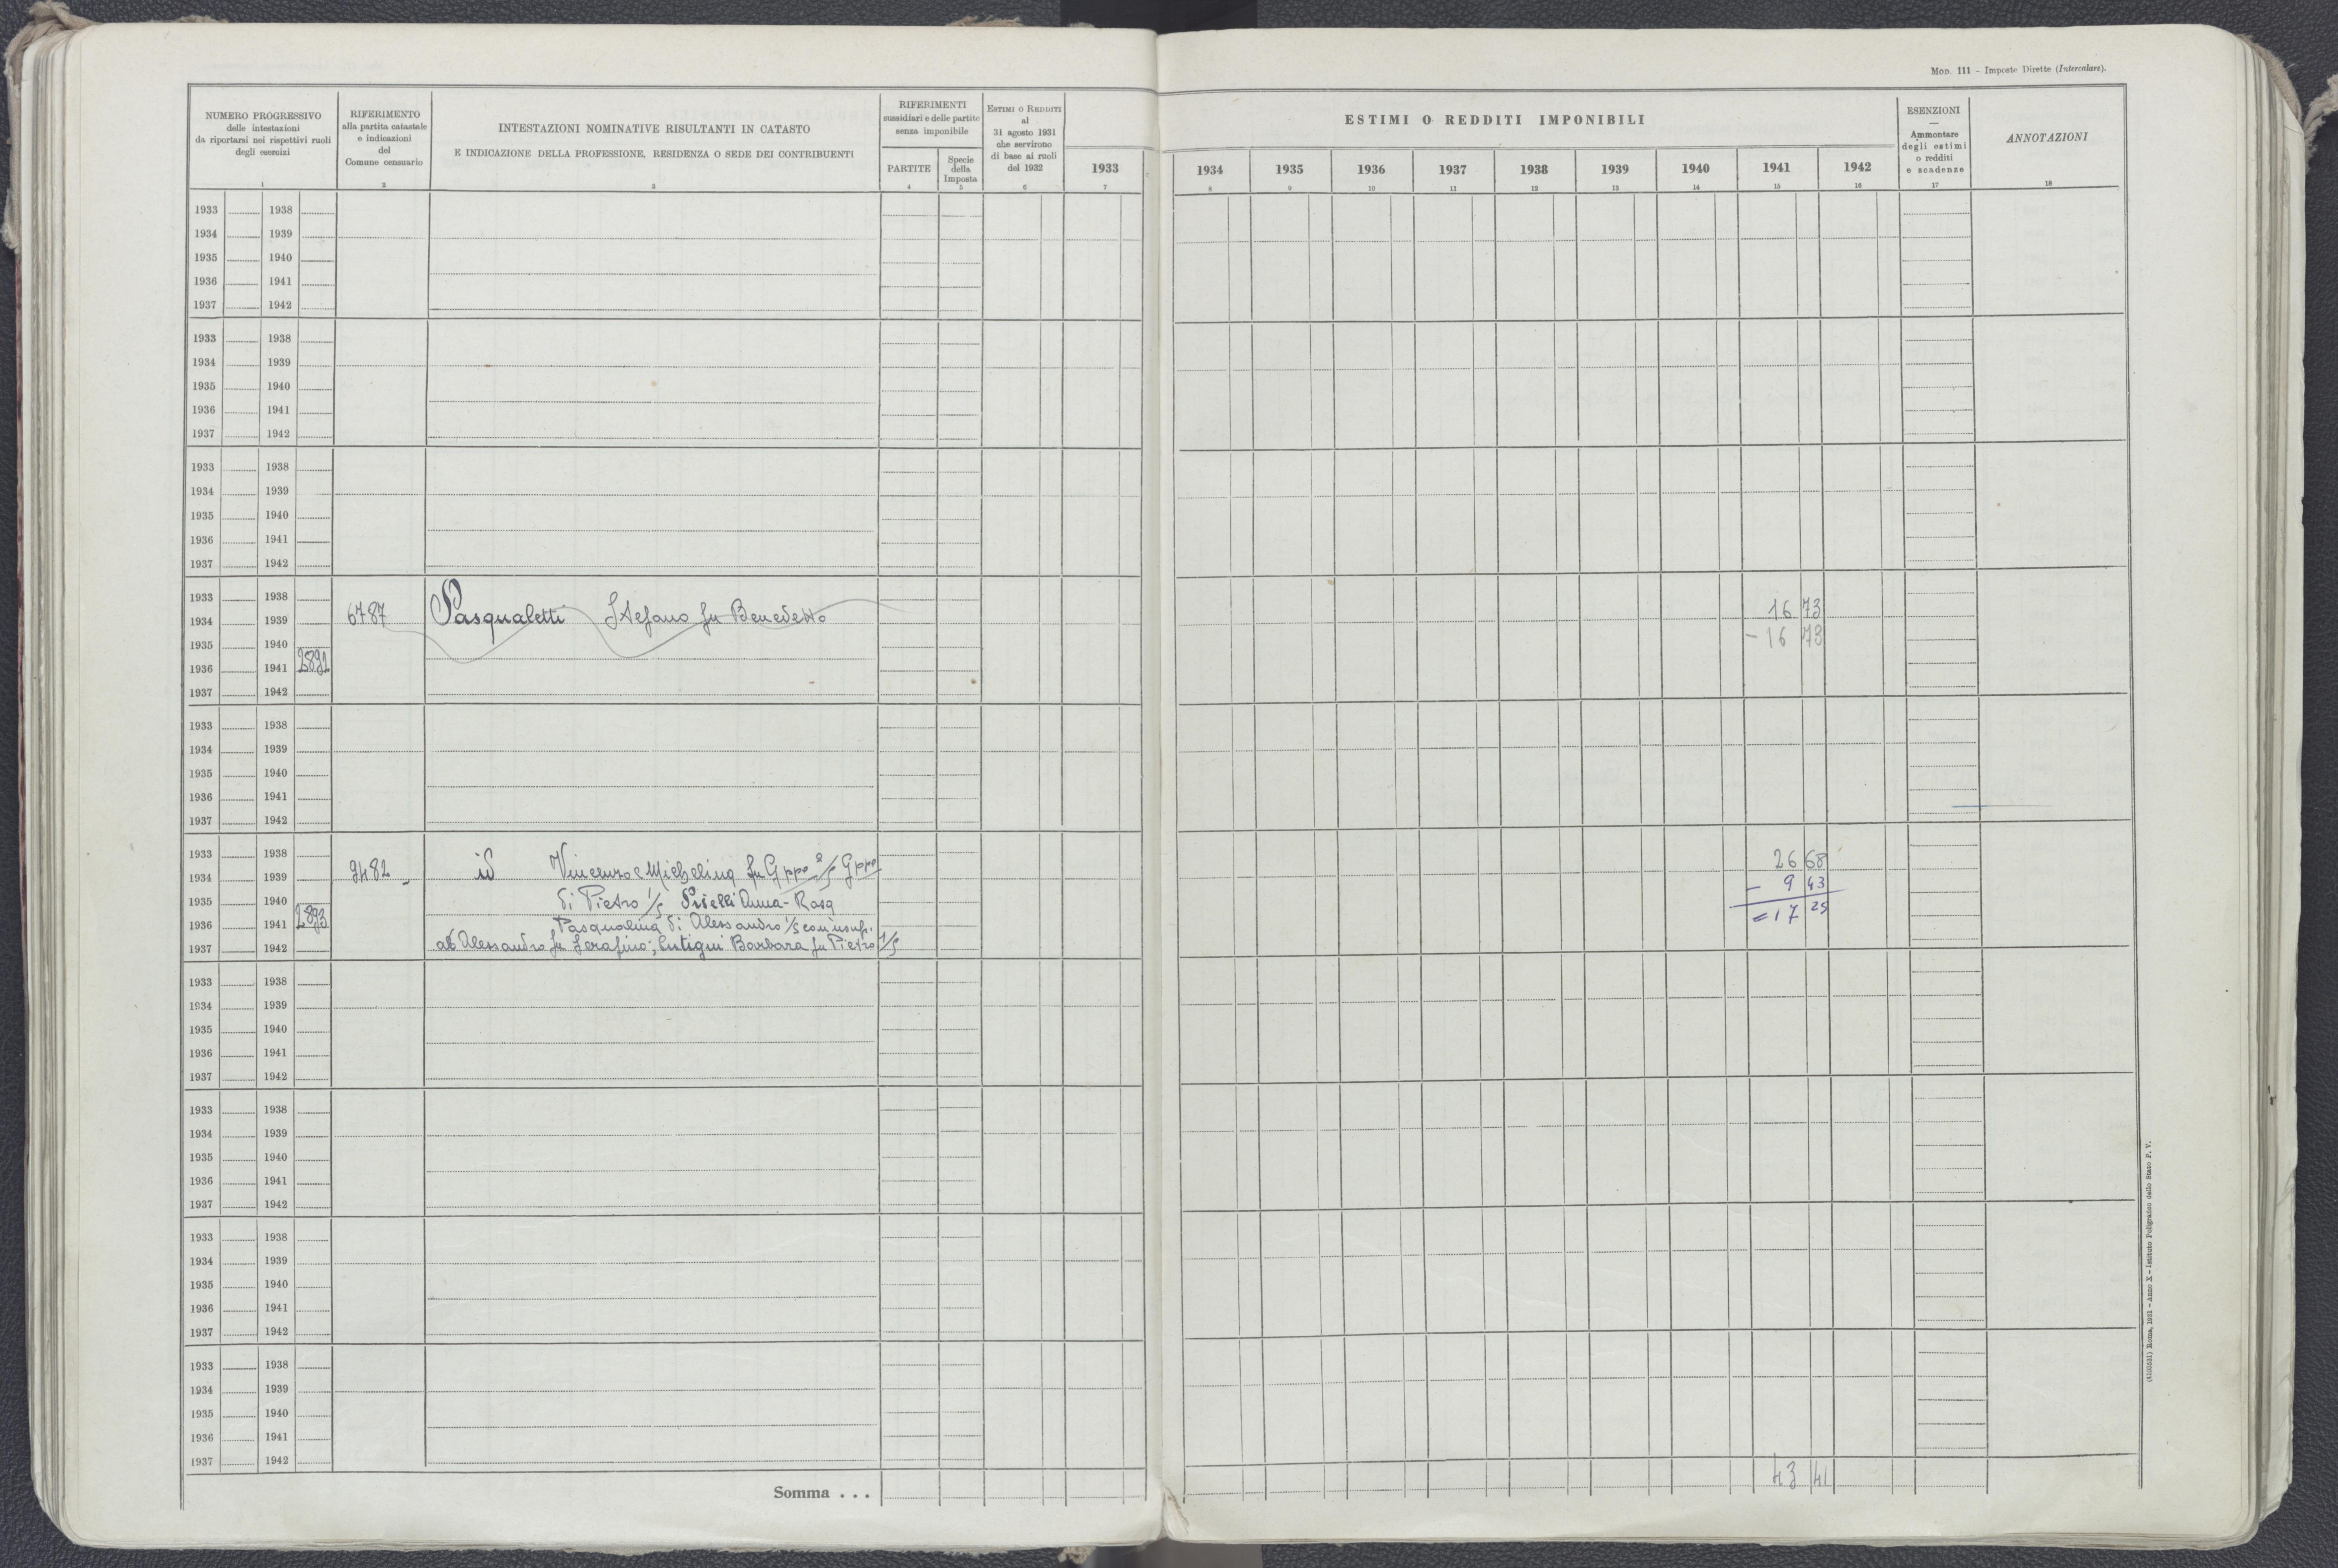 MOD. 111 - Imposte Dirette (Intercalare).
NUMERO PROGRESSIVO
delle intestazioni
da riportarsi nei rispettivi ruoli
degli esercizi
1
RIFERIMENTO
alla partita catastale
e indicazioni
del
Comune censuario
2
INTESTAZIONI NOMINATIVE RISULTANTI IN CATASTO
E INDICAZIONE DELLA PROFESSIONE, RESIDENZA O SEDE DEI CONTRIBUENTI
3
RIFERIMENTI
sussidiari e delle partite
senza imponibile
PARTITE
4
Specie
della
Imposta
5
ESTIMI O REDDITI
al
31 agosto 1931
che servirono
di base ai ruoli
del 1932
6
1933
7
ESTIMI O REDDITI IMPONIBILI
1934 1935 1936 1937 1938 1939 1940 1941 1942
8 9 10 11 12 13 14 15 16
ESENZIONI
—
Ammontare
degli estimi
o redditi
e scadenze
17
ANNOTAZIONI
18
1933 1938
1934 1939
1935 1940
1936 1941
1937 1942
1933 1938
1934 1939
1935 1940
1936 1941
1937 1942
1933 1938
1934 1939
1935 1940
1936 1941
1937 1942
1933 1938
1934 1939 6787 Pasqualetti Stefano fu Benedetto 16 73
1935 1940 - 16 73
1936 1941 2892
1937 1942
1933 1938
1934 1939
1935 1940
1936 1941
1937 1942
1933 1938 26 68
1934 1939 9482 id Vincenzo e Michelina fu Gppe 2/5 Gppe
- 9 43
1935 1940 di Pietro 1/5 Piselli Anna-Rosa
= 17 25
1936 1941 2893 Pasqualina di Alessandro 1/5 con usuf.
1937 1942 ad Alessandro fu Serafino; Barbara fu Pietro 1/5
1933 1938
1934 1939
1935 1940
1936 1941
1937 1942
1933 1938
1934 1939
1935 1940
1936 1941
1937 1942
1933 1938
1934 1939
1935 1940
1936 1941
1937 1942
1933 1938
1934 1939
1935 1940
1936 1941
1937 1942
Somma . . . 43 41
Roma, 1931 - Anno X - Istituto Poligrafico dello Stato P. V.